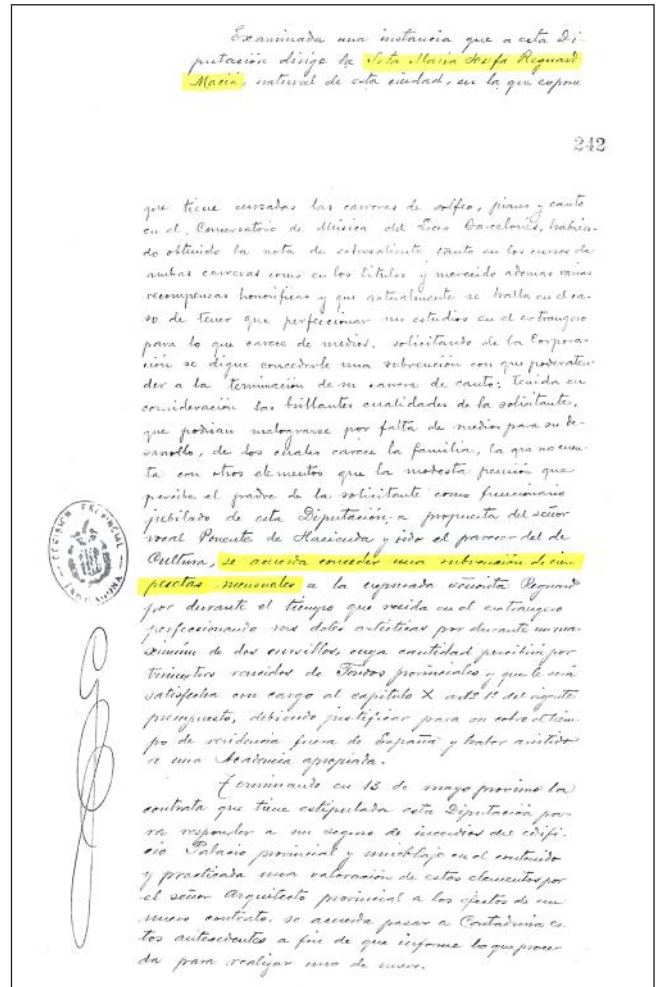 Examinada una instancia que a esta Di-
putación dirige la Srta María Josefa Regnard
Macià, natural de esta ciudad, en la que expone
242
que tiene cursadas las carreras de solfeo, piano y canto
en el Conservatorio de Música del Liceo Barcelonés, habien-
do obtenido la nota de sobresaliente tanto en los cursos de
ambas carreras como en los títulos y merecido además varias
recompensas honoríficas y que actualmente se halla en el ca-
so de tener que perfeccionar sus estudios en el extrangero
para lo que carece de medios, solicitando de la Corpora-
ción se digne concederle una subvención con que poder aten-
der a la terminación de su carrera de canto; tenida en
consideración las brillantes cualidades de la solicitante,
que podrían malograrse por falta de medios para su de-
sarrollo, de los cuales carece la familia, la que no cuen-
ta con otros elementos que la modesta pensión que
percibe el padre de la solicitante como funcionario
jubilado de esta Diputación, a propuesta del señor
vocal Ponente de Hacienda y oido el parecer del de
Cultura, se acuerda conceder una subvención de cien
pesetas mensuales a la expresada señorita Regnard
por durante el tiempo que resida en el extrangero
perfeccionando sus dotes artísticas por durante un ma-
ximum de dos cursillos, cuya cantidad percibirá por
trimestres vencidos de Fondos provinciales y que le será
satisfecha con cargo al capítulo X artº 1º del vigente
presupuesto, debiendo justificar para su cobro el tiem-
po de residencia fuera de España y haber asistido
a una Academia apropiada.
Terminando en 13 de mayo próximo la
contrata que tiene estipulada esta Diputación pa-
ra responder a un seguro de incendios del edifi-
cio Palacio provincial y mueblaje en el contenido
y practicada una valoración de estos elementos por
el señor Arquitecto provincial a los efectos de un
nuevo contrato, se acuerda pasar a Contaduría es-
tos antecedentes a fin de que informe lo que proce-
da para realizar uno de nuevo.
COMISIÓN PROVINCIAL
TARRAGONA